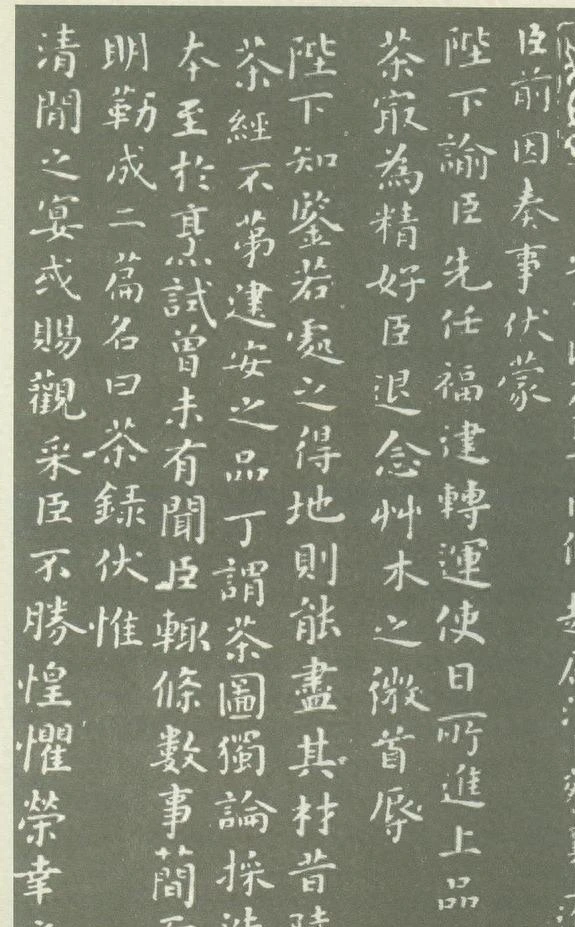 臣前因奏事伏蒙
陛下諭臣先任福建轉運使日所進上品
茶㝡為精好臣退念艸木之微首辱
陛下知鑒若處之得地則能盡其材昔
茶經不第建安之品丁謂茶圖獨論採
本至於烹試曾未有聞臣輙條數事簡
明勒成二篇名曰茶錄伏惟
清閒之宴或賜觀采臣不勝惶懼榮幸